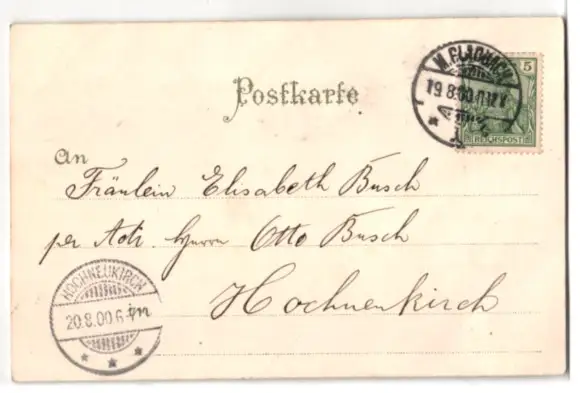 M.GLADBACH
19.8.00.
5
REICHSPOST
Postkarte
An
Fräulein Elisabeth Busch
per Adr. Herrn Otto Busch
Hochneukirch
HOCHNEUKIRCH
20.8.00.6-